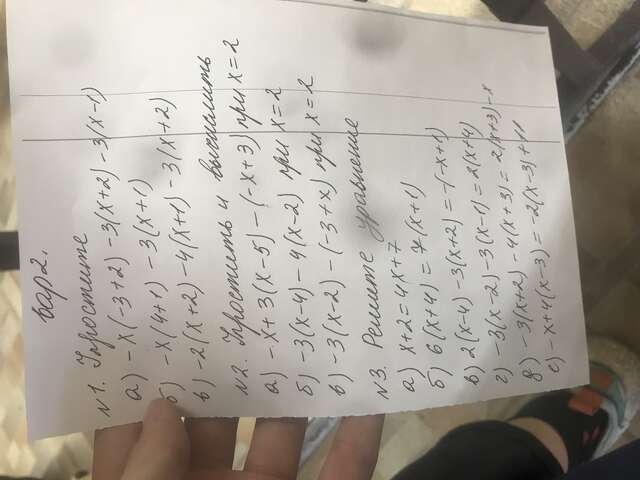 вар 2.
№1. Упростите
а) -x(-3+2) -3(x+2) -3(x-1)
б) -x(4+1) -3(x+1)
в) -2(x+2) -4(x+1) -3(x+2)
№2. Упростить и вычислить
а) -x+3(x-5) -(-x+3) при x=2
б) -3(x-4) -4(x-2) при x=2
в) -3(x-2) -(-3+x) при x=2
№3. Решите уравнение
а) x+2=4x+7
б) 6(x+4) = 7(x+1)
в) 2(x-4) -3(x+2) = -(-x+1)
г) -3(x-2) -3(x-1) = 2(x+4)
д) -3(x+2) -4(x+3) = 2(x+3)-x
е) -x+4(x-3) = -2(x-3)+11